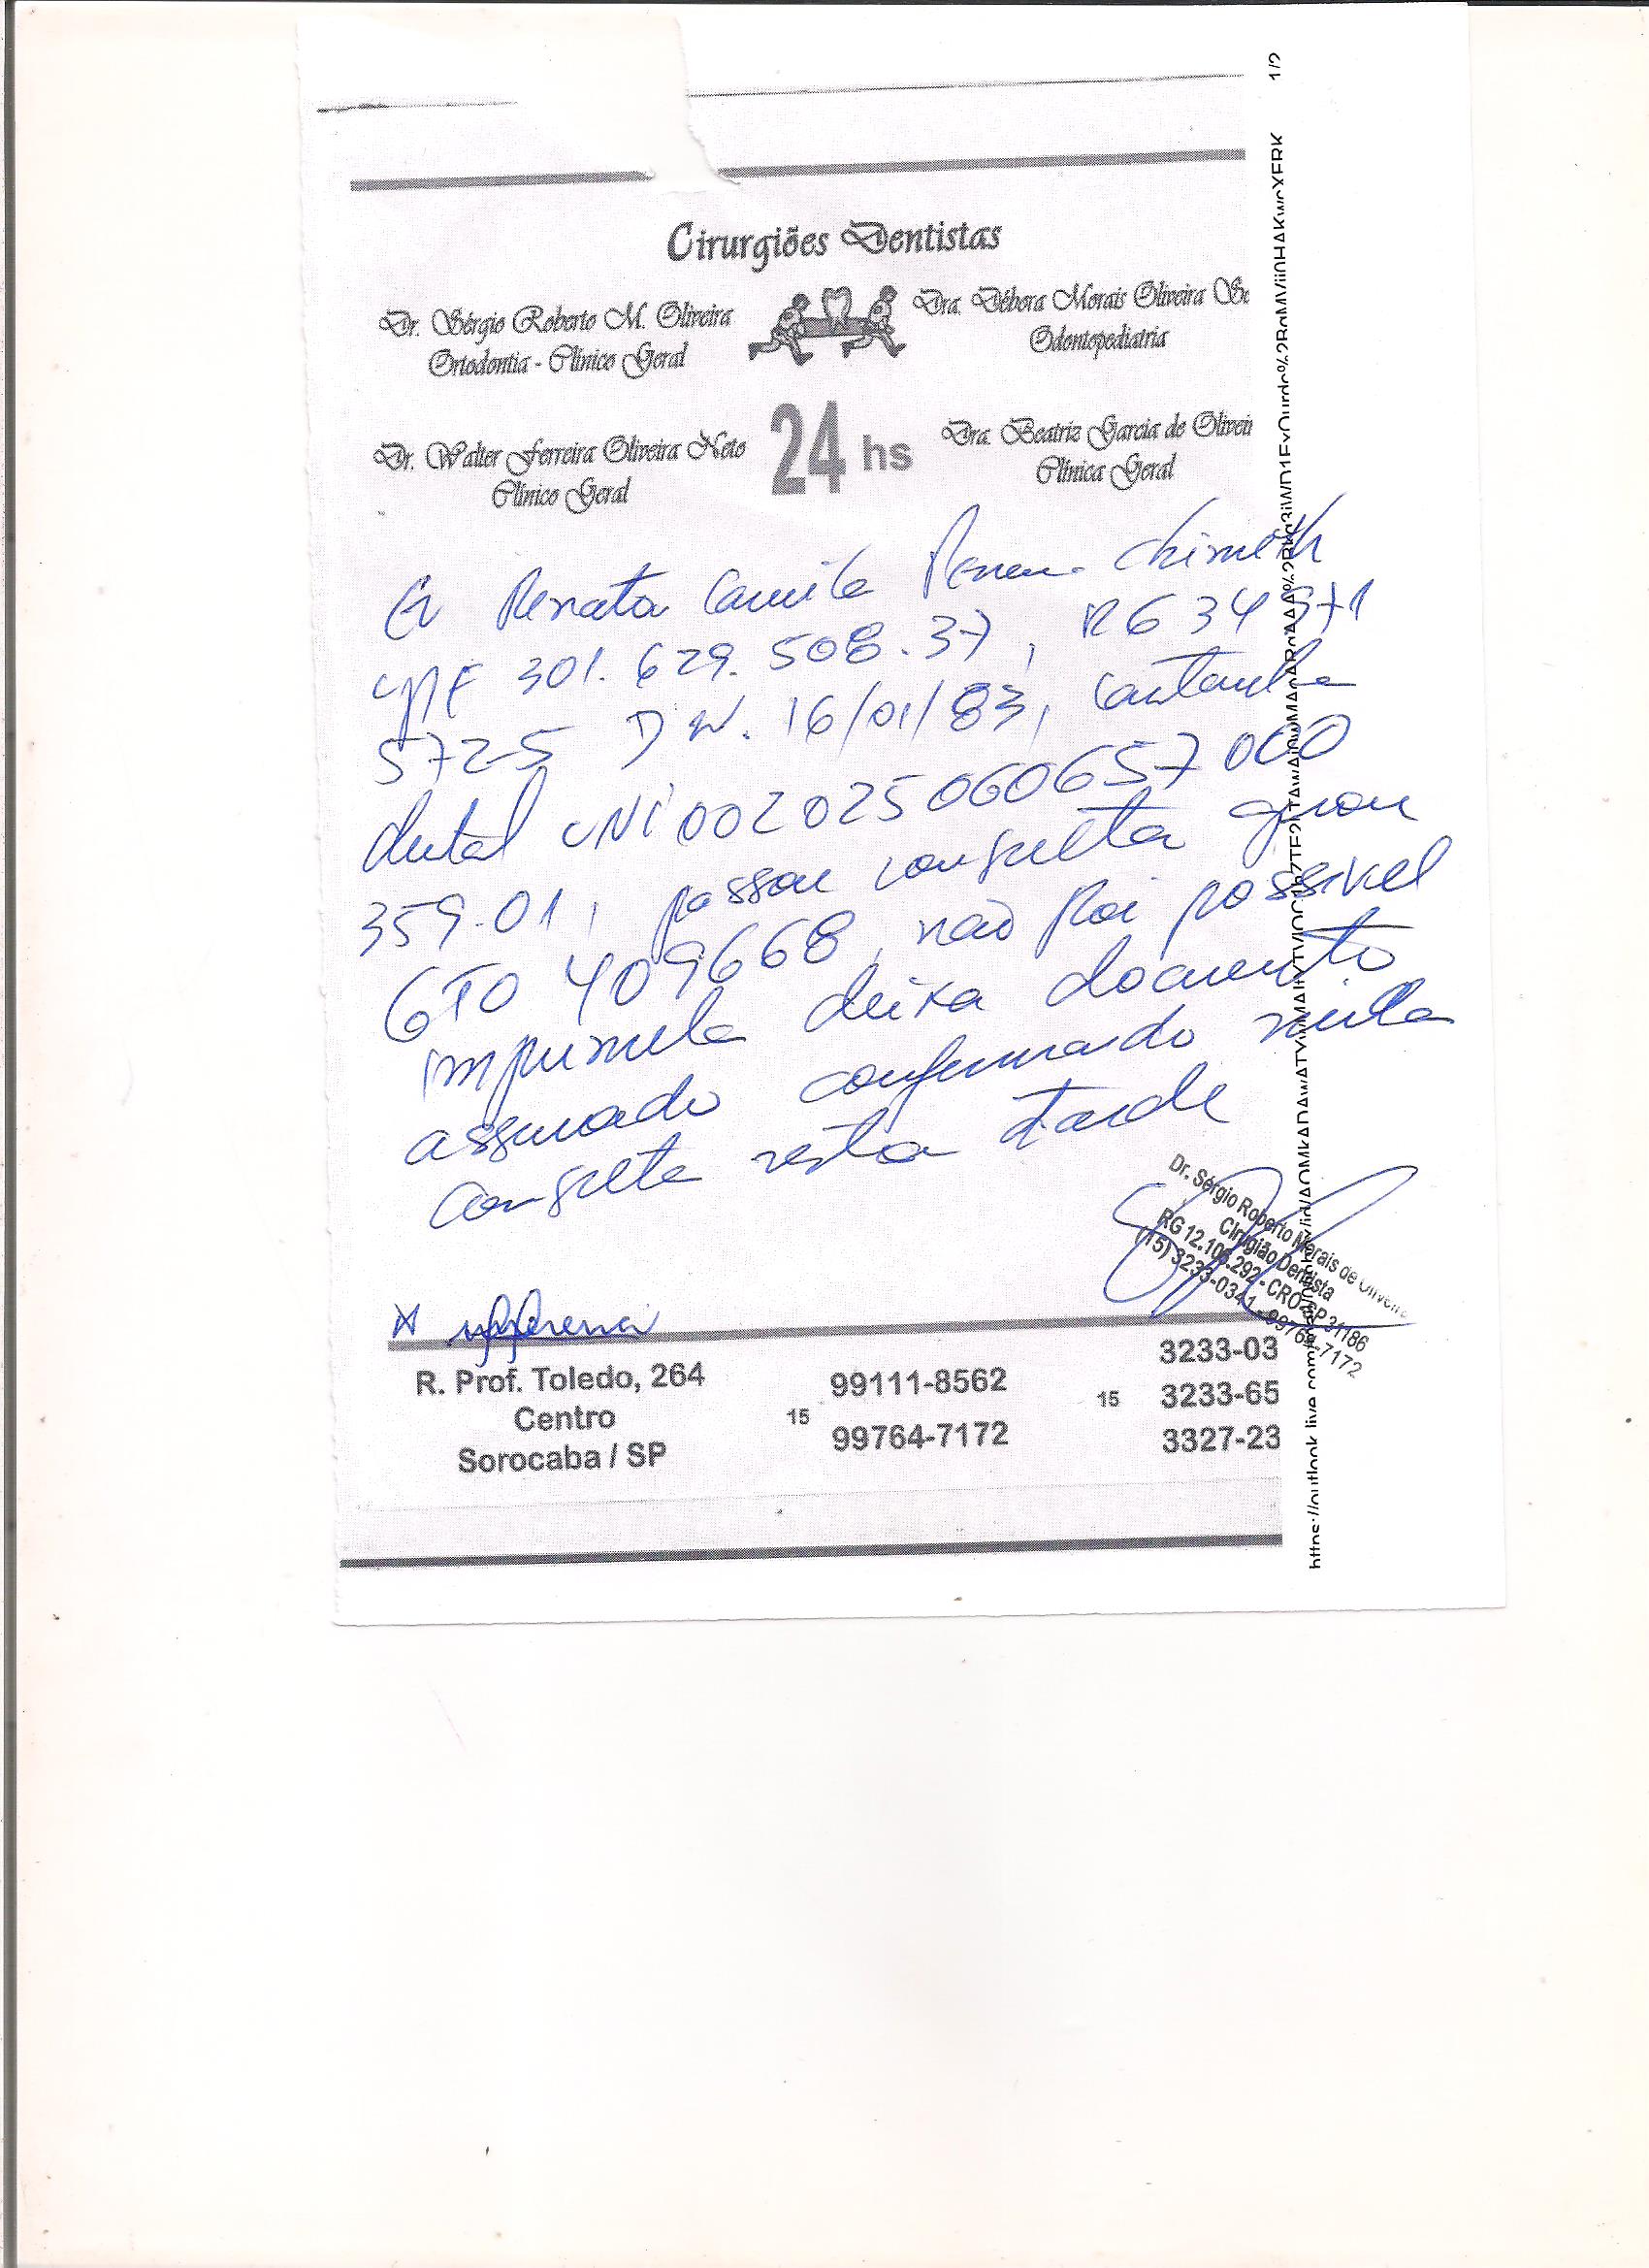 Cirurgiões Dentistas
Dr. Sérgio Roberto M. Oliveira
Ortodontia - Clínico Geral
Dra. Débora Morais Oliveira Se
Odontopediatria
Dr. Walter Ferreira Oliveira Neto
Clínico Geral
24 hs
Dra. Beatriz Garcia de Oliveir
Clínica Geral
Eu Renata Camila
CPF 301.629.508.37, RG 34 971
572-5 D N. 16/01/83,
dental UNI 002025060657000
359.01, passou consulta
GTO 409668, não foi possivel
deixa documento
assinado confirmado minha
consulta nesta tarde
Dr. Sérgio Roberto Morais de Oliveira
Cirugião Dentista
RG 12.106.292 - CRO-SP 31186
(15) 3233-0341 - 99764-7172
R. Prof. Toledo, 264
Centro
Sorocaba / SP
15
99111-8562
99764-7172
15
3233-03
3233-65
3327-23
1/2